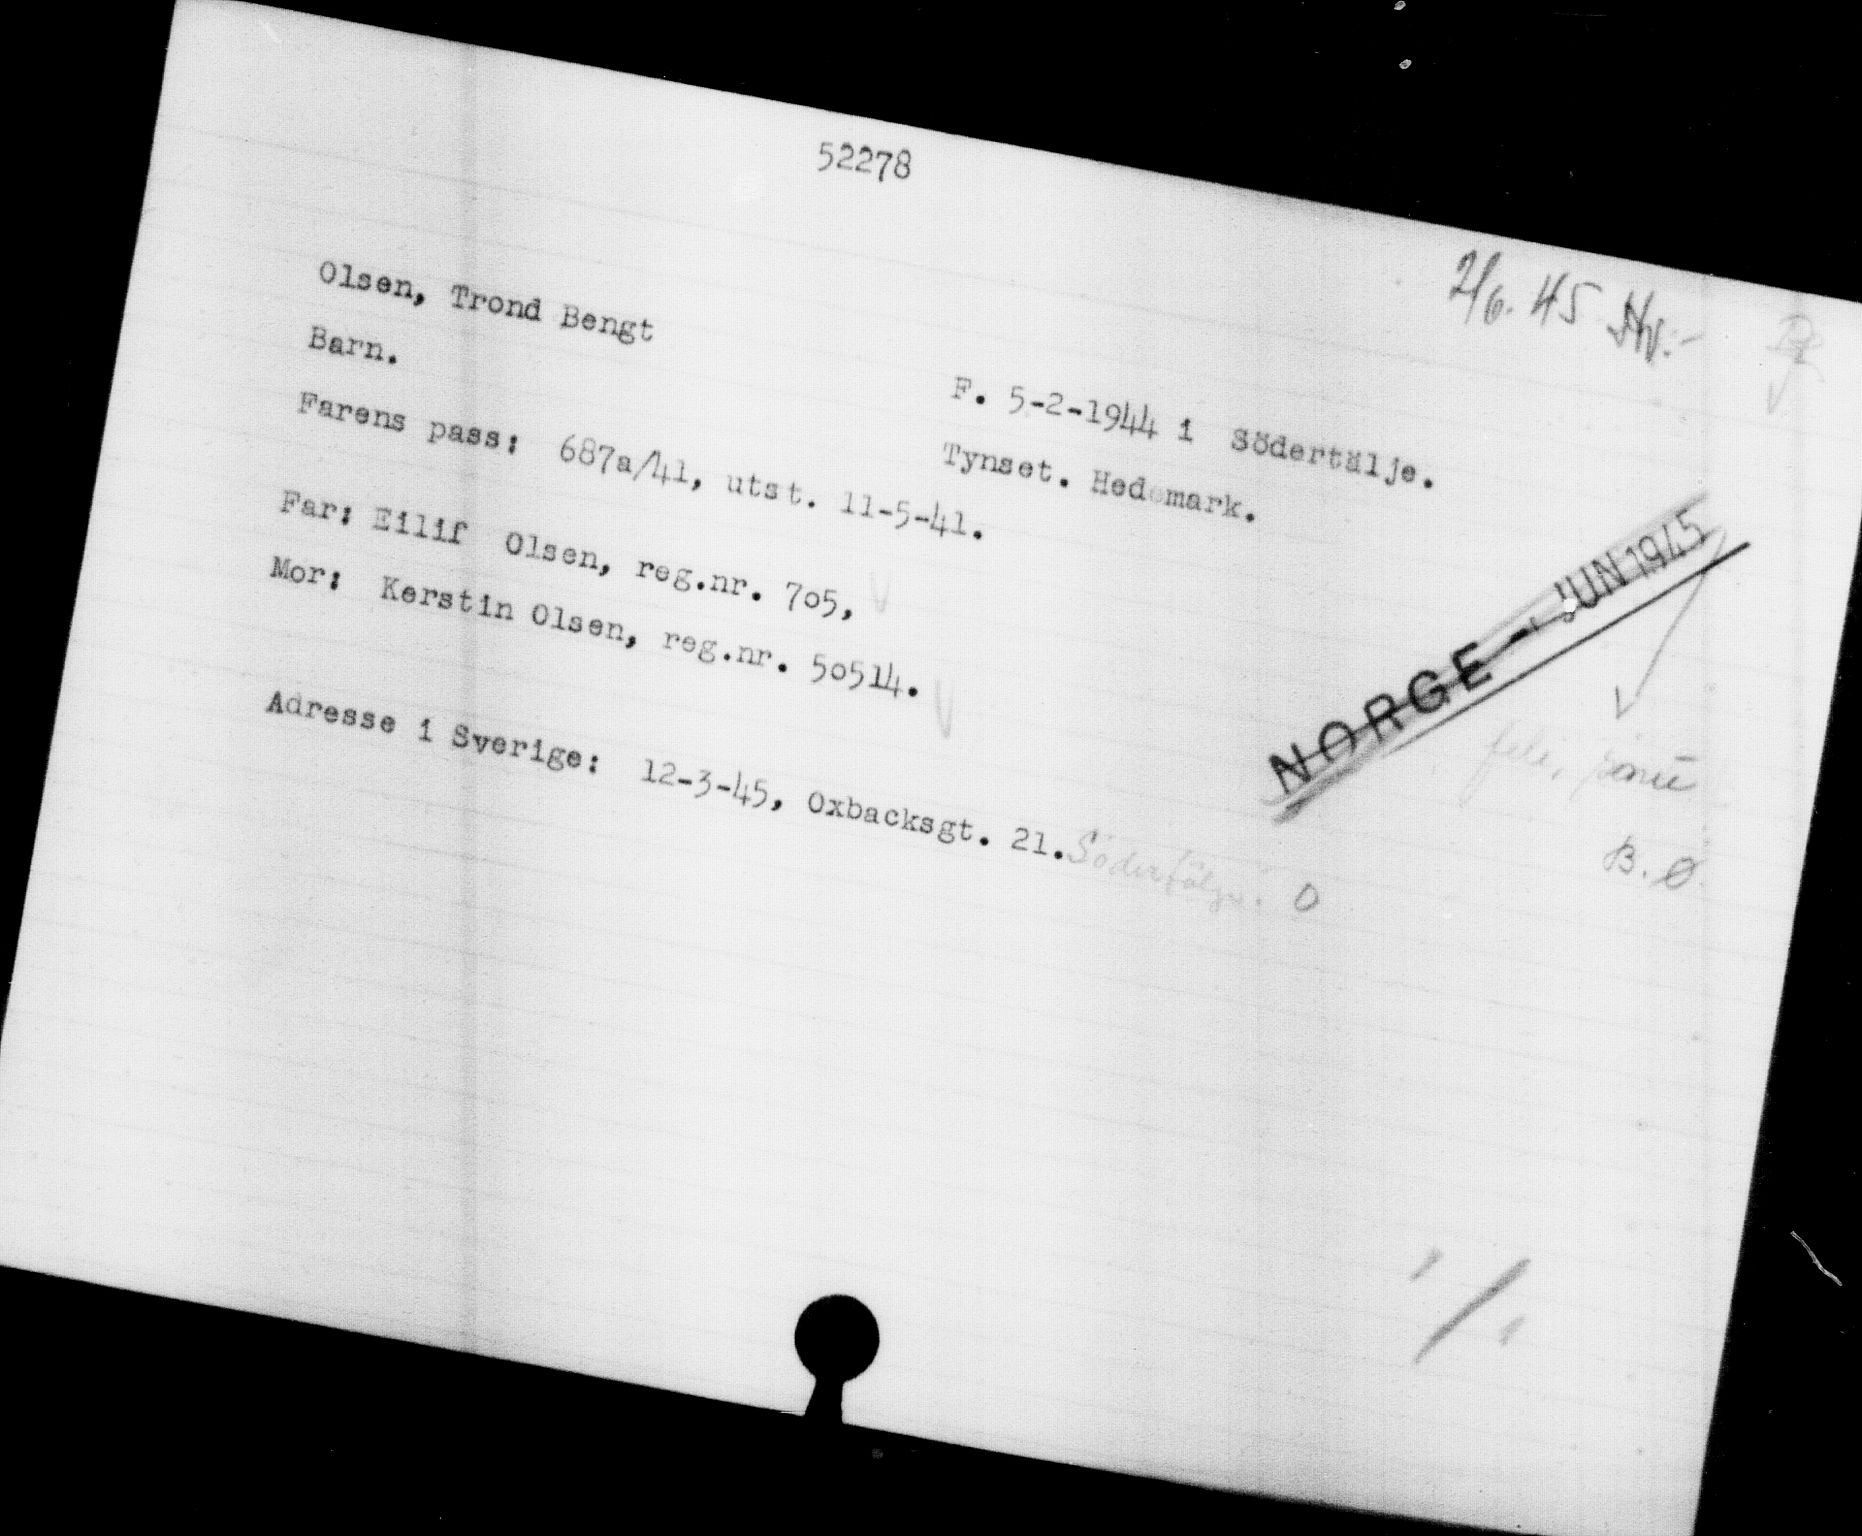 52278
2/6. 45 Hv.-
Olsen, Trond Bengt
Barn.
F. 5-2-1944 i Södertälje.
Tynset. Hedemark.
Farens pass: 687a/41, utst. 11-5-41.
Far: Eilif Olsen, reg.nr. 705,
Mor: Kerstin Olsen, reg.nr. 50514.
NORGE - JUN 1945
Adresse i Sverige: 12-3-45, Oxbacksgt. 21. Södertälje. O
B.Ø